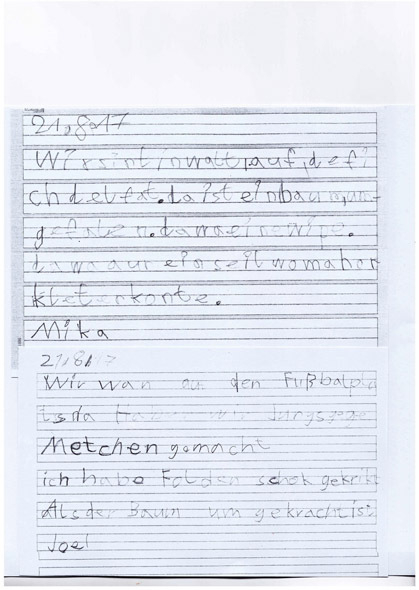 21.8.17
Wir sint in walt, auf, de fi
ch delfat. da ist ein baum, um-
gefalen. da wa eine wipe.
da wa aur ein seil wo ma hoh
kleter konte.
Mika
21.8.17
Wir wan auf den Fußbalpla
ts da Haben wir Jungs gege
Metchen gemacht
ich habe Folden schok gekrikt
Als der Baum um gekracht ist
Joel